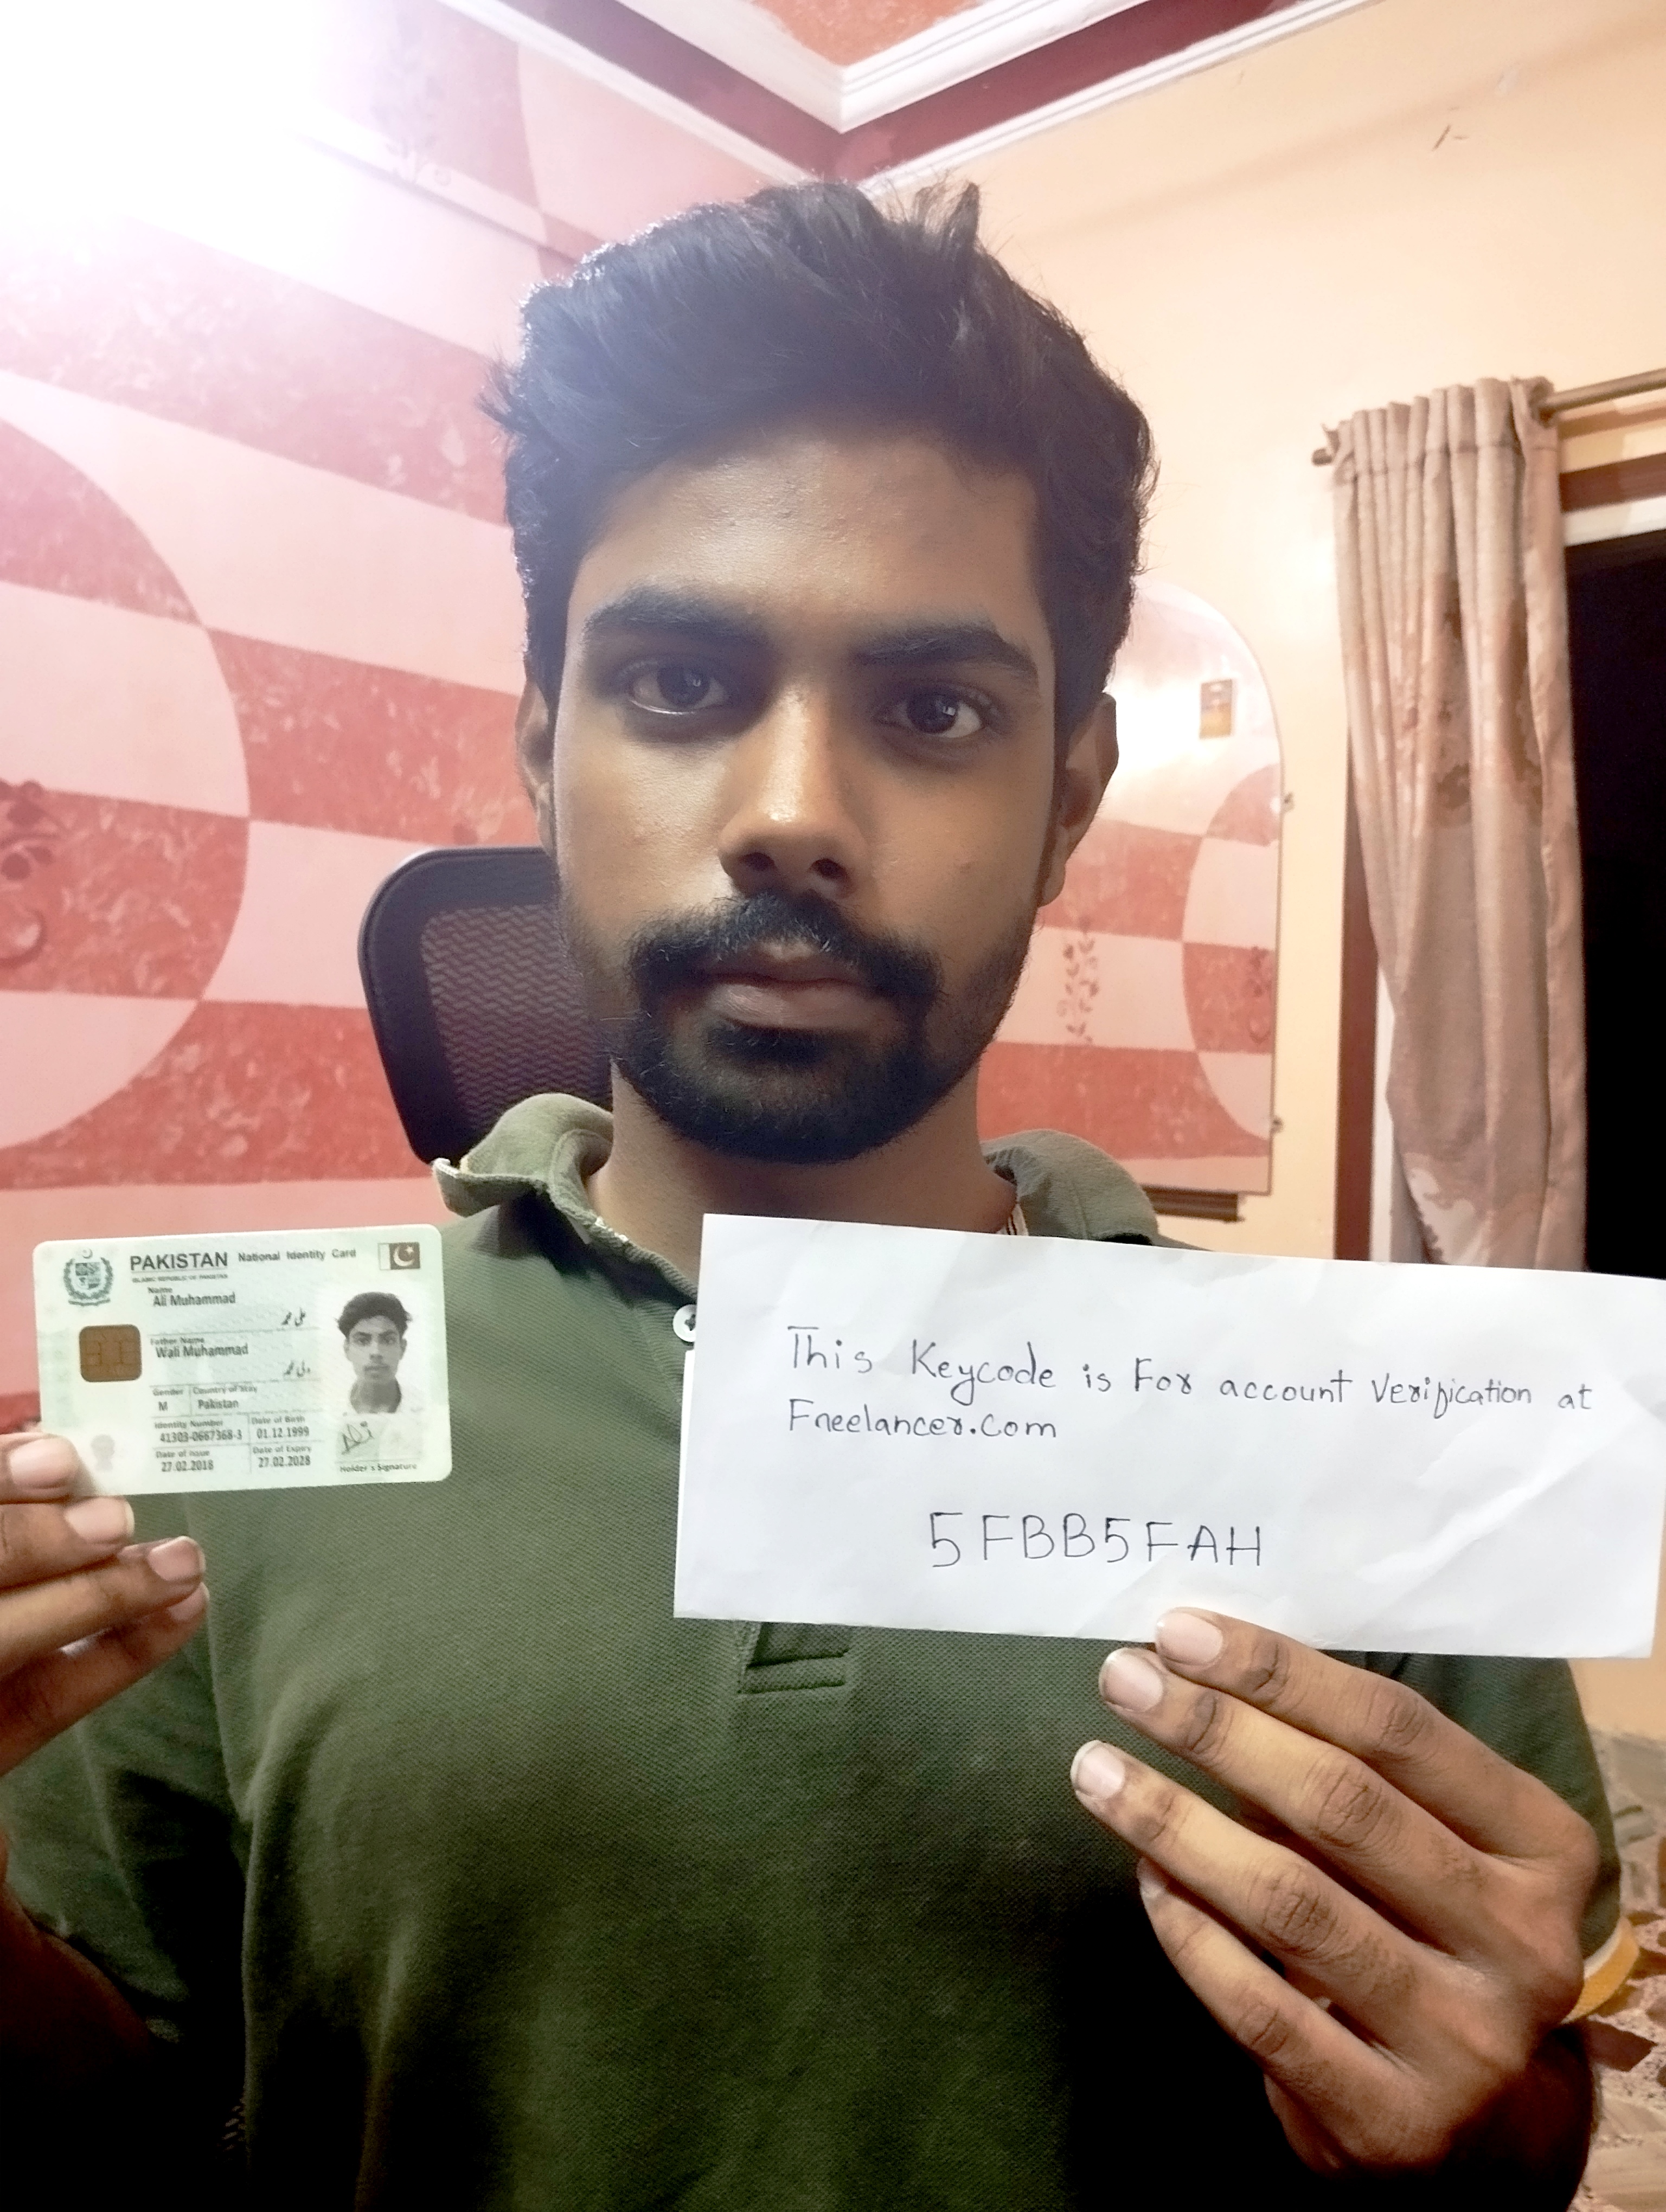 PAKISTAN National Identity Card
ISLAMIC REPUBLIC OF PAKISTAN
Name
Ali Muhammad
علی محمد
Father Name
Wali Muhammad
ولی محمد
Gender Country of Stay
M Pakistan
Identity Number Date of Birth
41303-0667368-3 01.12.1999
Date of Issue Date of Expiry
27.02.2018 27.02.2028
Holder's Signature
This Keycode is For account Verification at
Freelancer.com
5FBB5FAH